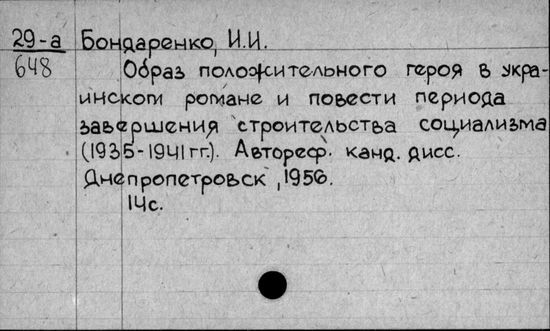 29-а Бондаренко, И.И.
648 Образ положительного героя в укра-
инском романе и повести периода
завершения строительства социализма
(1935-1941 гг.). Автореф. канд. дисс.
Днепропетровск, 1956.
14с.